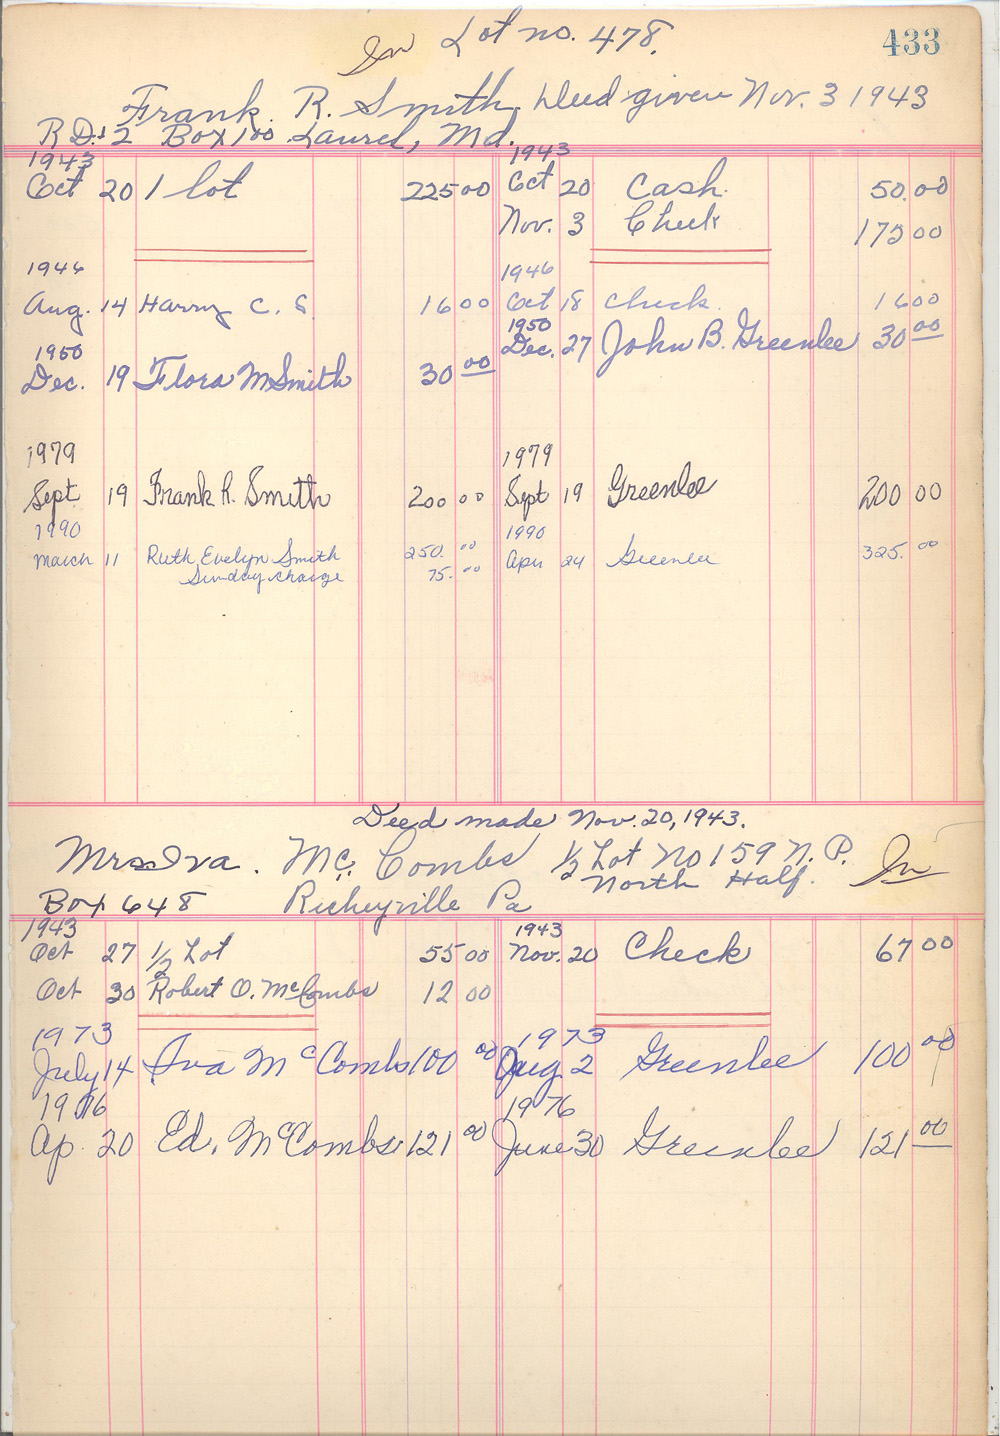 In Lot no. 478.
433
Frank R. Smith, Deed given Nov. 3 1943
R D. 2 Box 100 Laurel, Md.
1943 1943
Oct 20 1 lot 225 00 Oct 20 Cash 50.00
Nov. 3 Check 175 00
1946 1946
Aug. 14 Harry C. S 16 00 Oct 18 check 16 00
1950 1950
Dec. 19 Flora M Smith 30 00 Dec. 27 John B. Greenlee 30 00
1979 1979
Sept 19 Frank R. Smith 200 00 Sept 19 Greenlee 200 00
1990 1990
March 11 Ruth Evelyn Smith 250. 00 Apr 24 Greenlee 325. 00
Sunday charge 75. 00
Deed made Nov. 20, 1943.
Mrs Iva. Mc. Combs 1/2 Lot No 159 N. P. In
North Half.
Box 648 Richeyville Pa
1943 1943
Oct 27 1/2 Lot 55 00 Nov. 20 Check 67 00
Oct 30 Robert O. McCombs 12 00
1973 1973
July 14 Iva McCombs 100 00 Aug 2 Greenlee 100 00
1976 1976
Ap. 20 Ed. McCombs 121 00 June 30 Greenlee 121 00